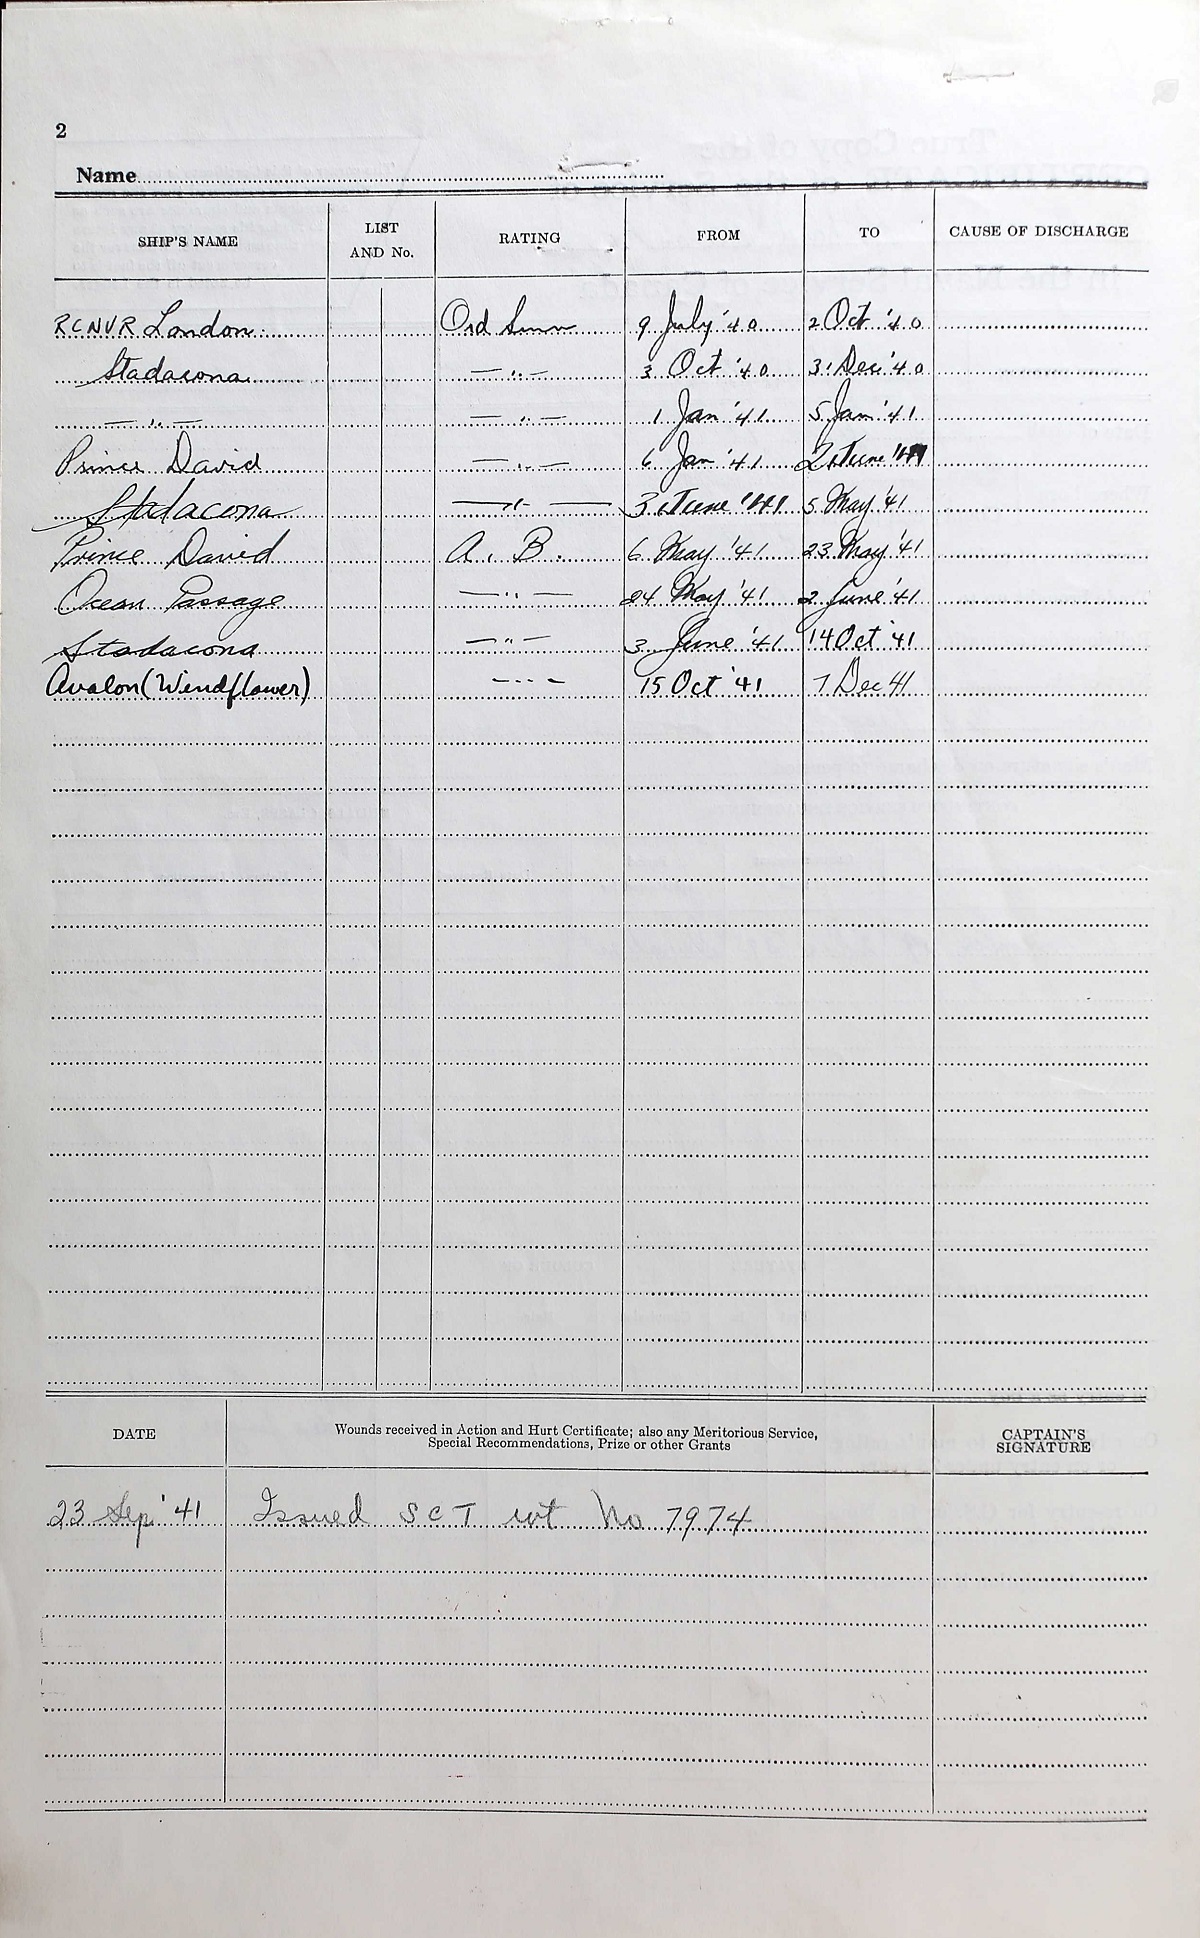 2
Name
SHIP'S NAME LIST AND No. RATING FROM TO CAUSE OF DISCHARGE
RCNVR London Ord Smn 9 July '40 2 Oct '40
Stadacona —"— 3 Oct '40 31 Dec '40
—"— —"— 1 Jan '41 5 Jan '41
Prince David —"— 6 Jan '41 2 June '41
Stadacona —"— 3 June '41 5 May '41
Prince David A. B. 6 May '41 23 May '41
Ocean Passage —"— 24 May '41 2 June '41
Stadacona —"— 3 June '41 14 Oct '41
Avalon (Windflower) —"— 15 Oct '41 7 Dec 41
DATE Wounds received in Action and Hurt Certificate; also any Meritorious Service, CAPTAIN'S
Special Recommendations, Prize or other Grants SIGNATURE
23 Sep '41 Issued S C T wt No 7974